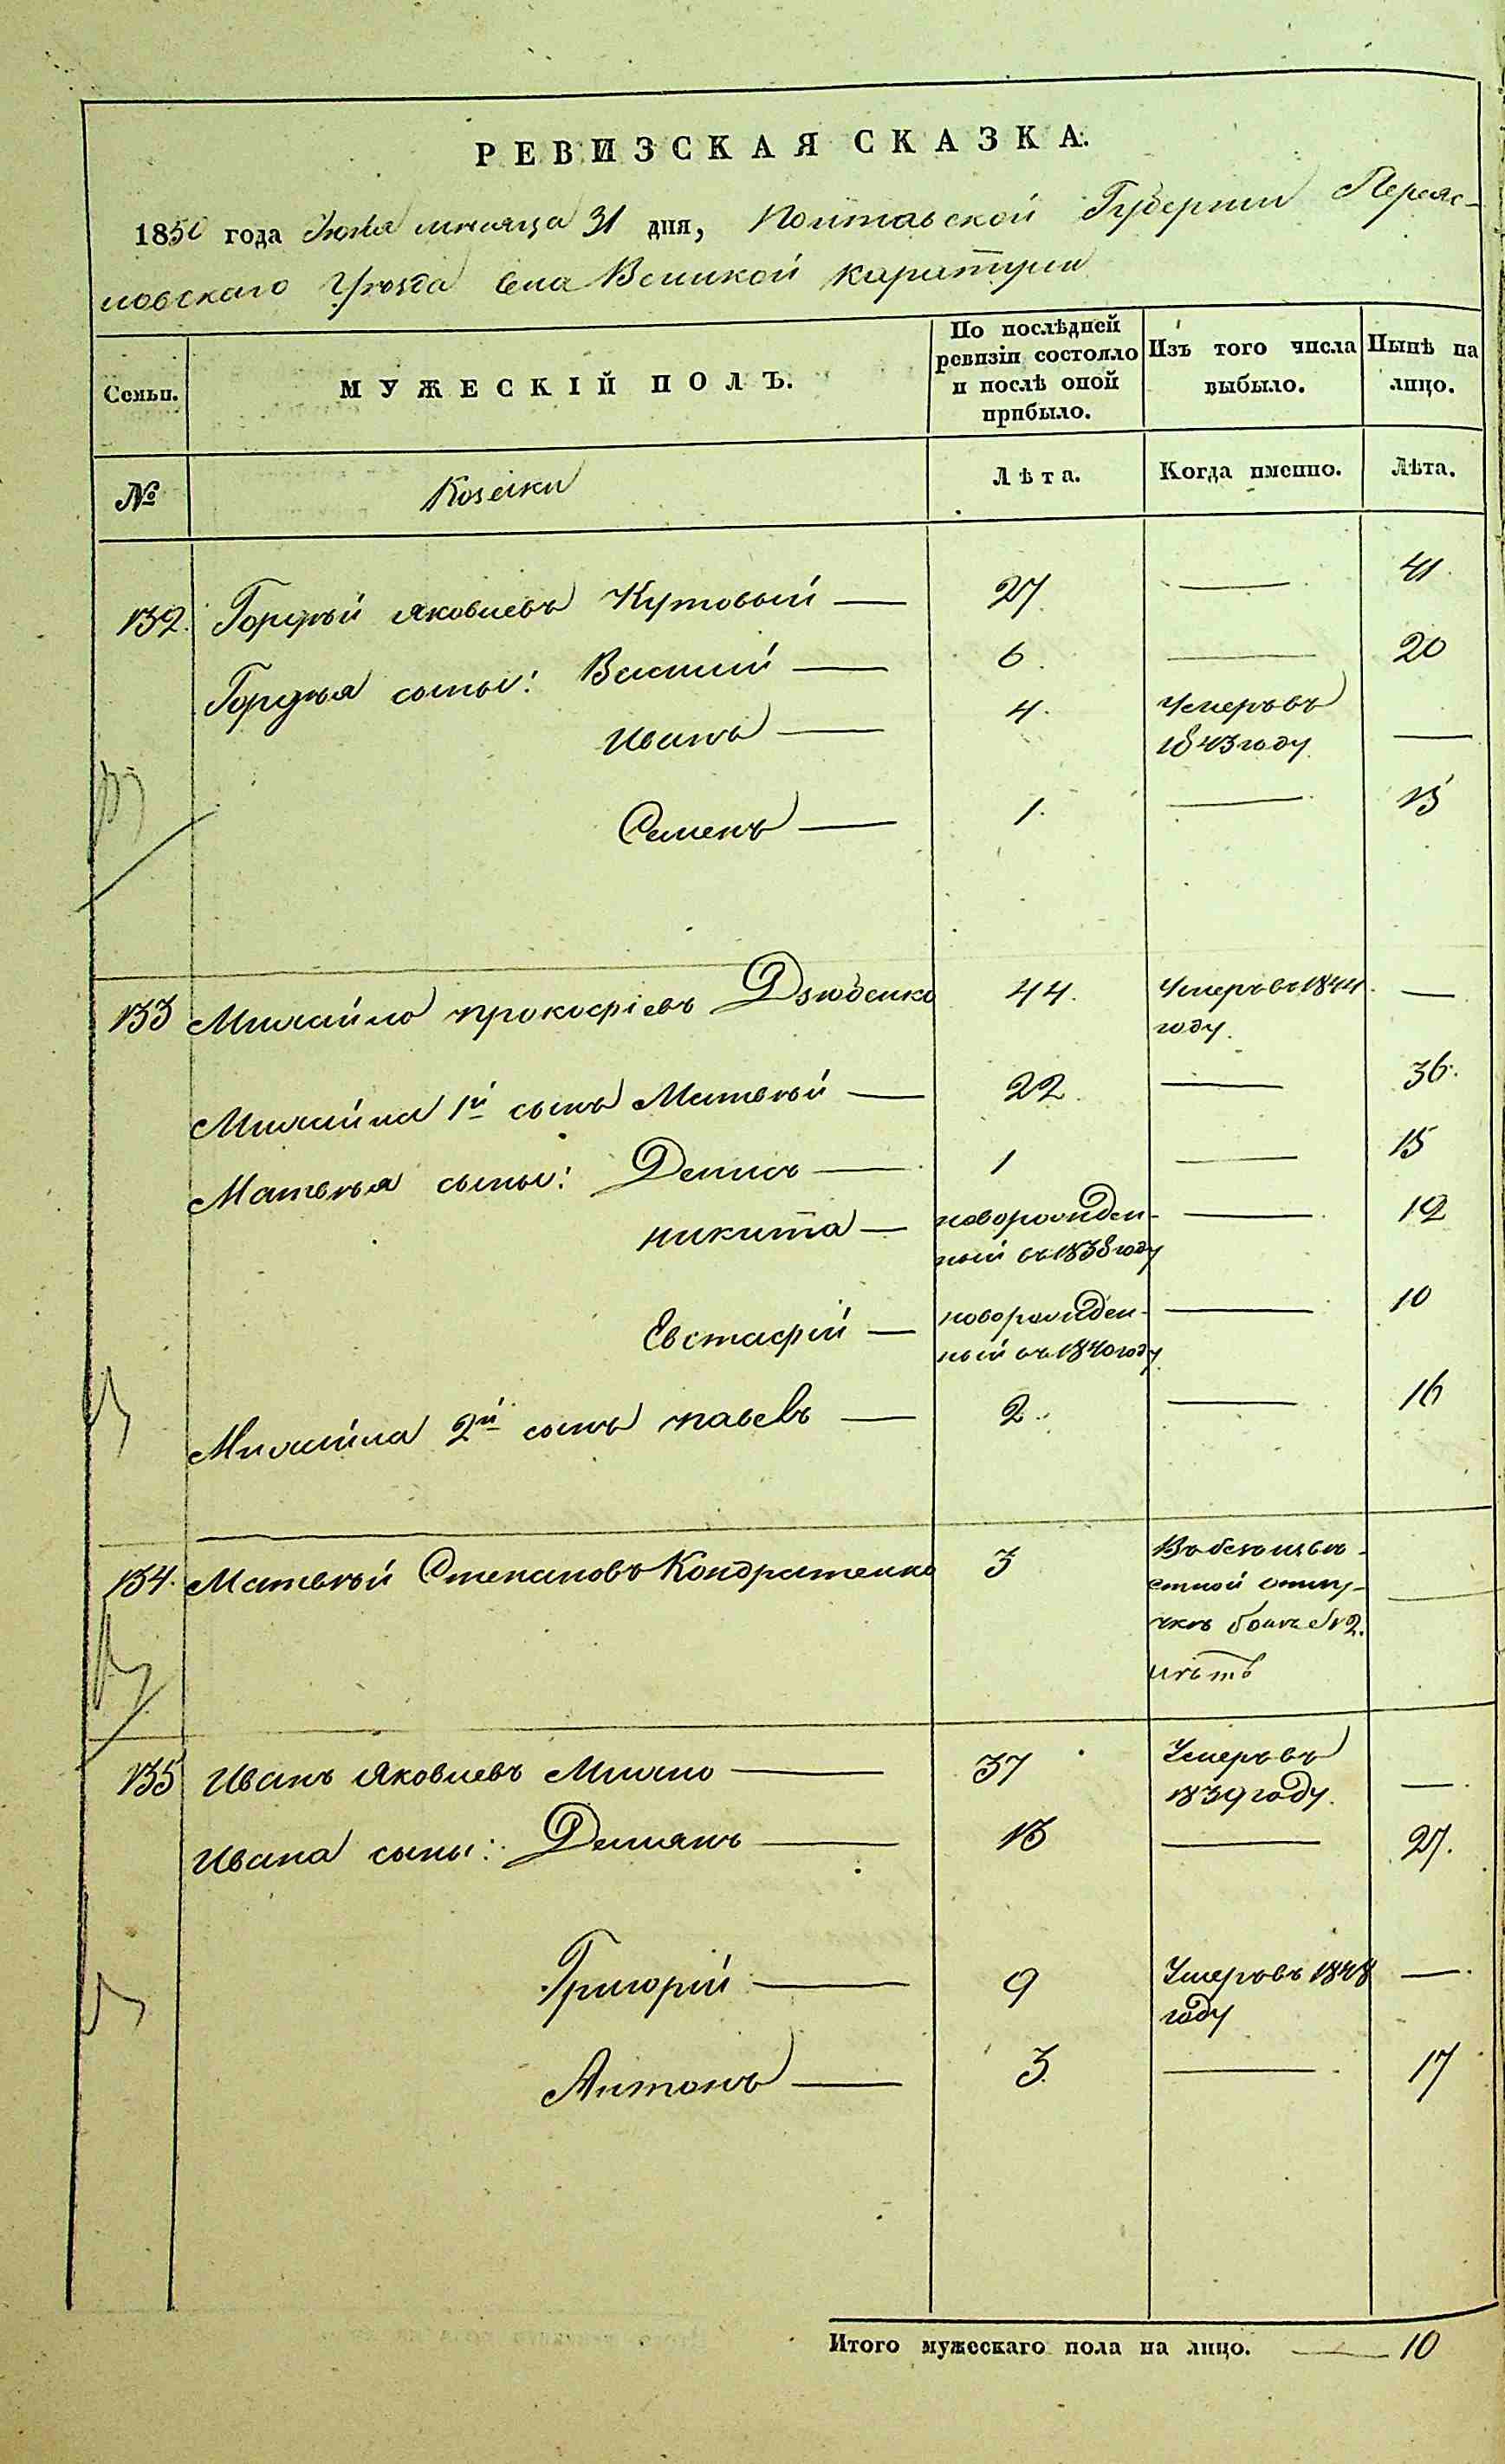 РЕВИЗСКАЯ СКАЗКА.
1850 года Іюля месяца 31 дня, Полтавской Губернии Переяс-
ловскаго Уѣзда Села Великой Каратули
Семьи.
МУЖЕСКІЙ ПОЛЪ.
По послѣдней ревизіи состояло и послѣ оной прибыло.
Изъ того числа выбыло.
Нынѣ на лицо.
№
Козаки
Лѣта.
Когда именно.
Лѣта.
132. Гордѣй Яковлевъ Кутовый — 27. — 41.
Гордѣя сыны: Василий — 6. — 20
Иванъ — 4. Умеръ въ 1843 году. —
Семенъ — 1. — 15
133 Михайло Прокофіевъ Дзюбенко 44. Умеръ въ 1844 году. —
Михайла 1й сынъ Матвѣй — 22. — 36.
Матвѣя сыны: Денисъ — 1 — 15
Никита — новорожден-
ный въ 1838 году — 12
Евстафий — новорожден-
ный въ 1840 году — 10
Михайла 2й сынъ Павелъ — 2. — 16
134. Матвѣй Степановъ Кондратенко 3 Въ безъизвѣ-
стной отлу-
чкѣ болѣе 2.
лѣтъ —
135 Иванъ Яковлевъ Михно — 37 Умеръ въ 1839 году. —
Ивана сыны: Демянъ — 13 — 27.
Григорій — 9 Умеръ въ 1848 году —
Антонъ — 3. — 17
Итого мужескаго пола на лицо. — 10